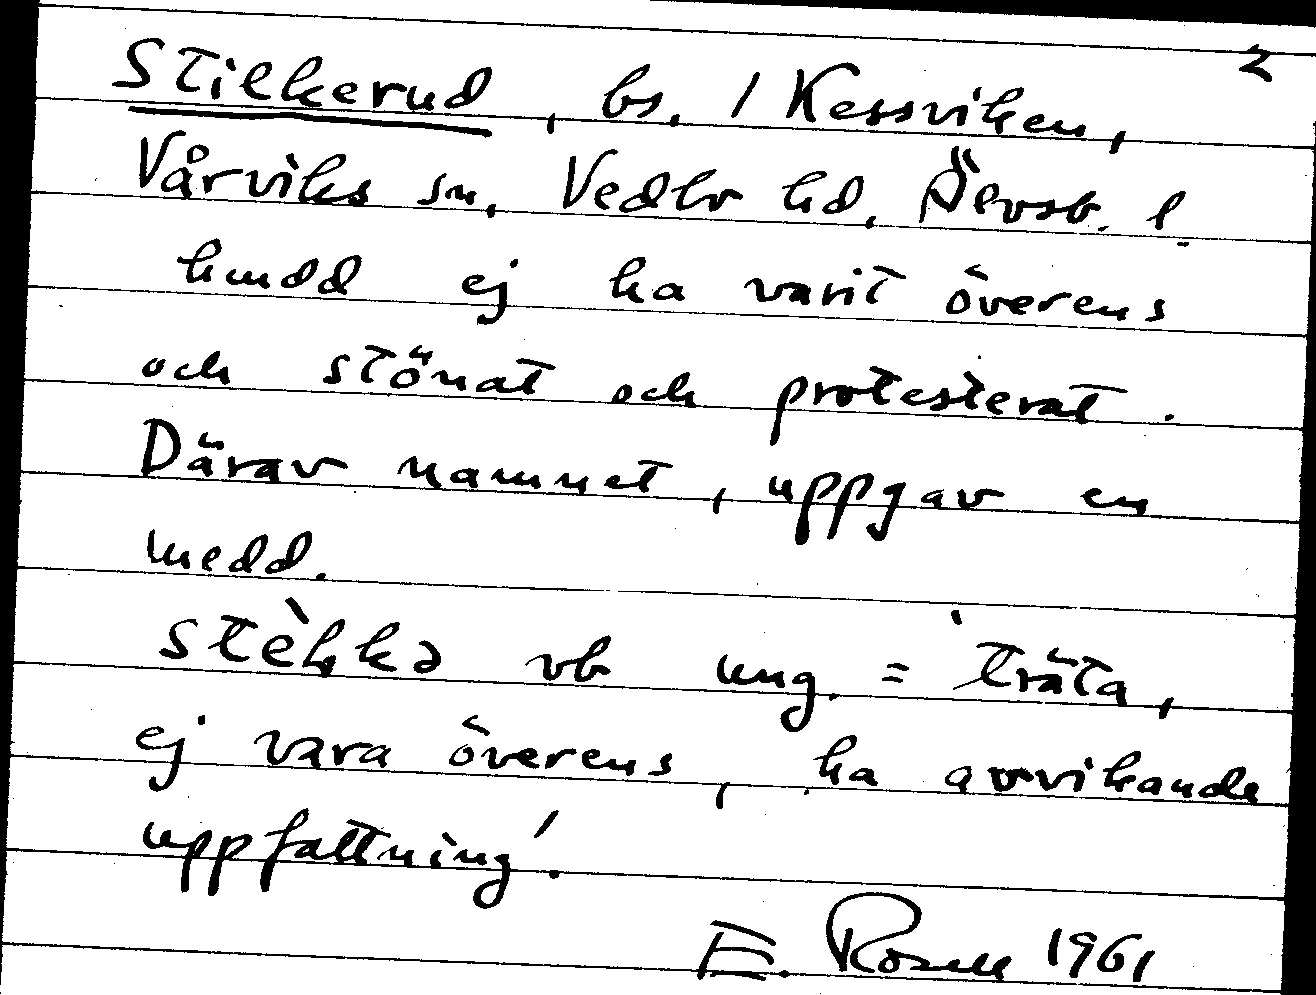 2
Stilkerud, bs. / Kessviken,
Vårviks sn. Vedbo hd. Älvsb. l.
hundd ej ha varit överens
och stönat och protesterat.
Därav namnet, uppgav en
medd.
stèkkə vb ung. = 'träta,
ej vara överens, ha avvikande
uppfattning'.
E. Rosell 1961